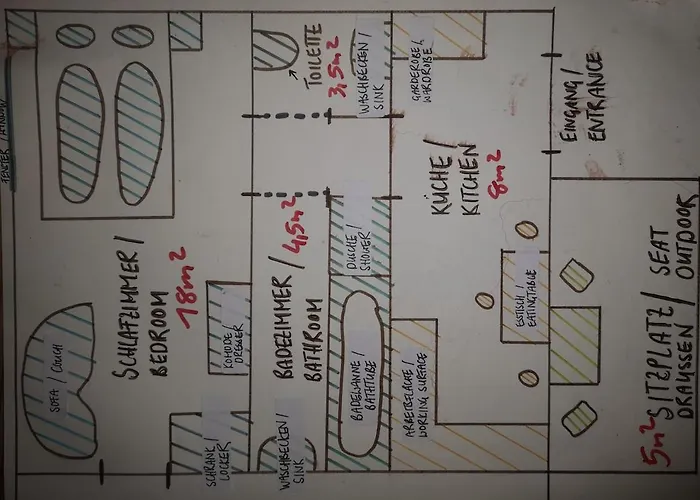 FENSTER / WINDOW
SCHLAFZIMMER/
BEDROOM
18m²
SOFA / COUCH
KOMODE/
DRESSER
SCHRANK/
LOCKER
TOILETTE
3,5m²
WASCHBECKEN/
SINK
BADEZIMMER/
BATHROOM
4,5m²
DUSCHE/
SHOWER
BADEWANNE/
BATHTUBE
WASCHBECKEN/
SINK
GARDEROBE/
WARDROBE
KÜCHE/
KITCHEN
8m²
ESSTISCH/
EATINGTABLE
ARBEITSFLÄCHE/
WORKING SURFACE
EINGANG/
ENTRANCE
SITZPLATZ/ SEAT
DRAUSSEN/ OUTDOOR
5m²